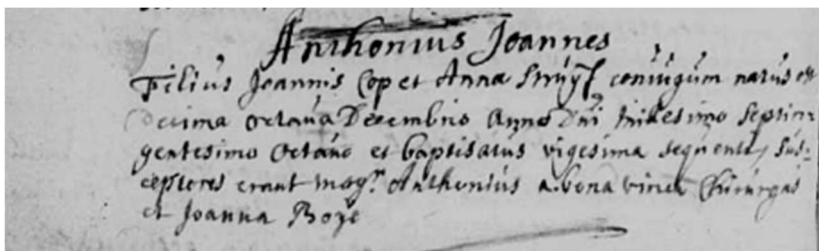 Anthonius Joannes
Filius Joannis Cop et Anna Struyf coniugum natus est
decima octava Decembris Anno Dni millesimo septin-
gentesimo octavo et baptisatus vigesima sequente, sus-
ceptores erant mag.r Anthonius a bona vinea Chirurgus
et Joanna Boye